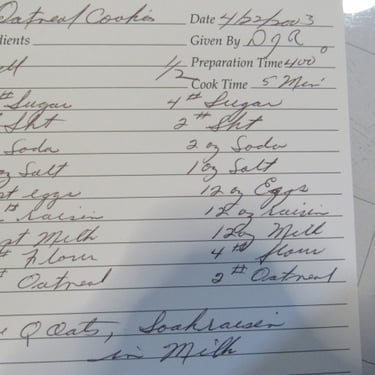 Oatmeal Cookies Date 4/22/2003
dients Given By DJR.
ll 1/2 Preparation Time 400
Cook Time 5 Min
# Sugar 4# Sugar
# Sht 2# Sht
Soda 2 oz Soda
oz Salt 1 oz Salt
pt eggs 12 oz Eggs
# raisin 12 oz raisin
pt Milk 12 oz Milk
# Flour 4# flour
# Oatmeal 2# Oatmeal
Q Oats, Soak raisin
in Milk